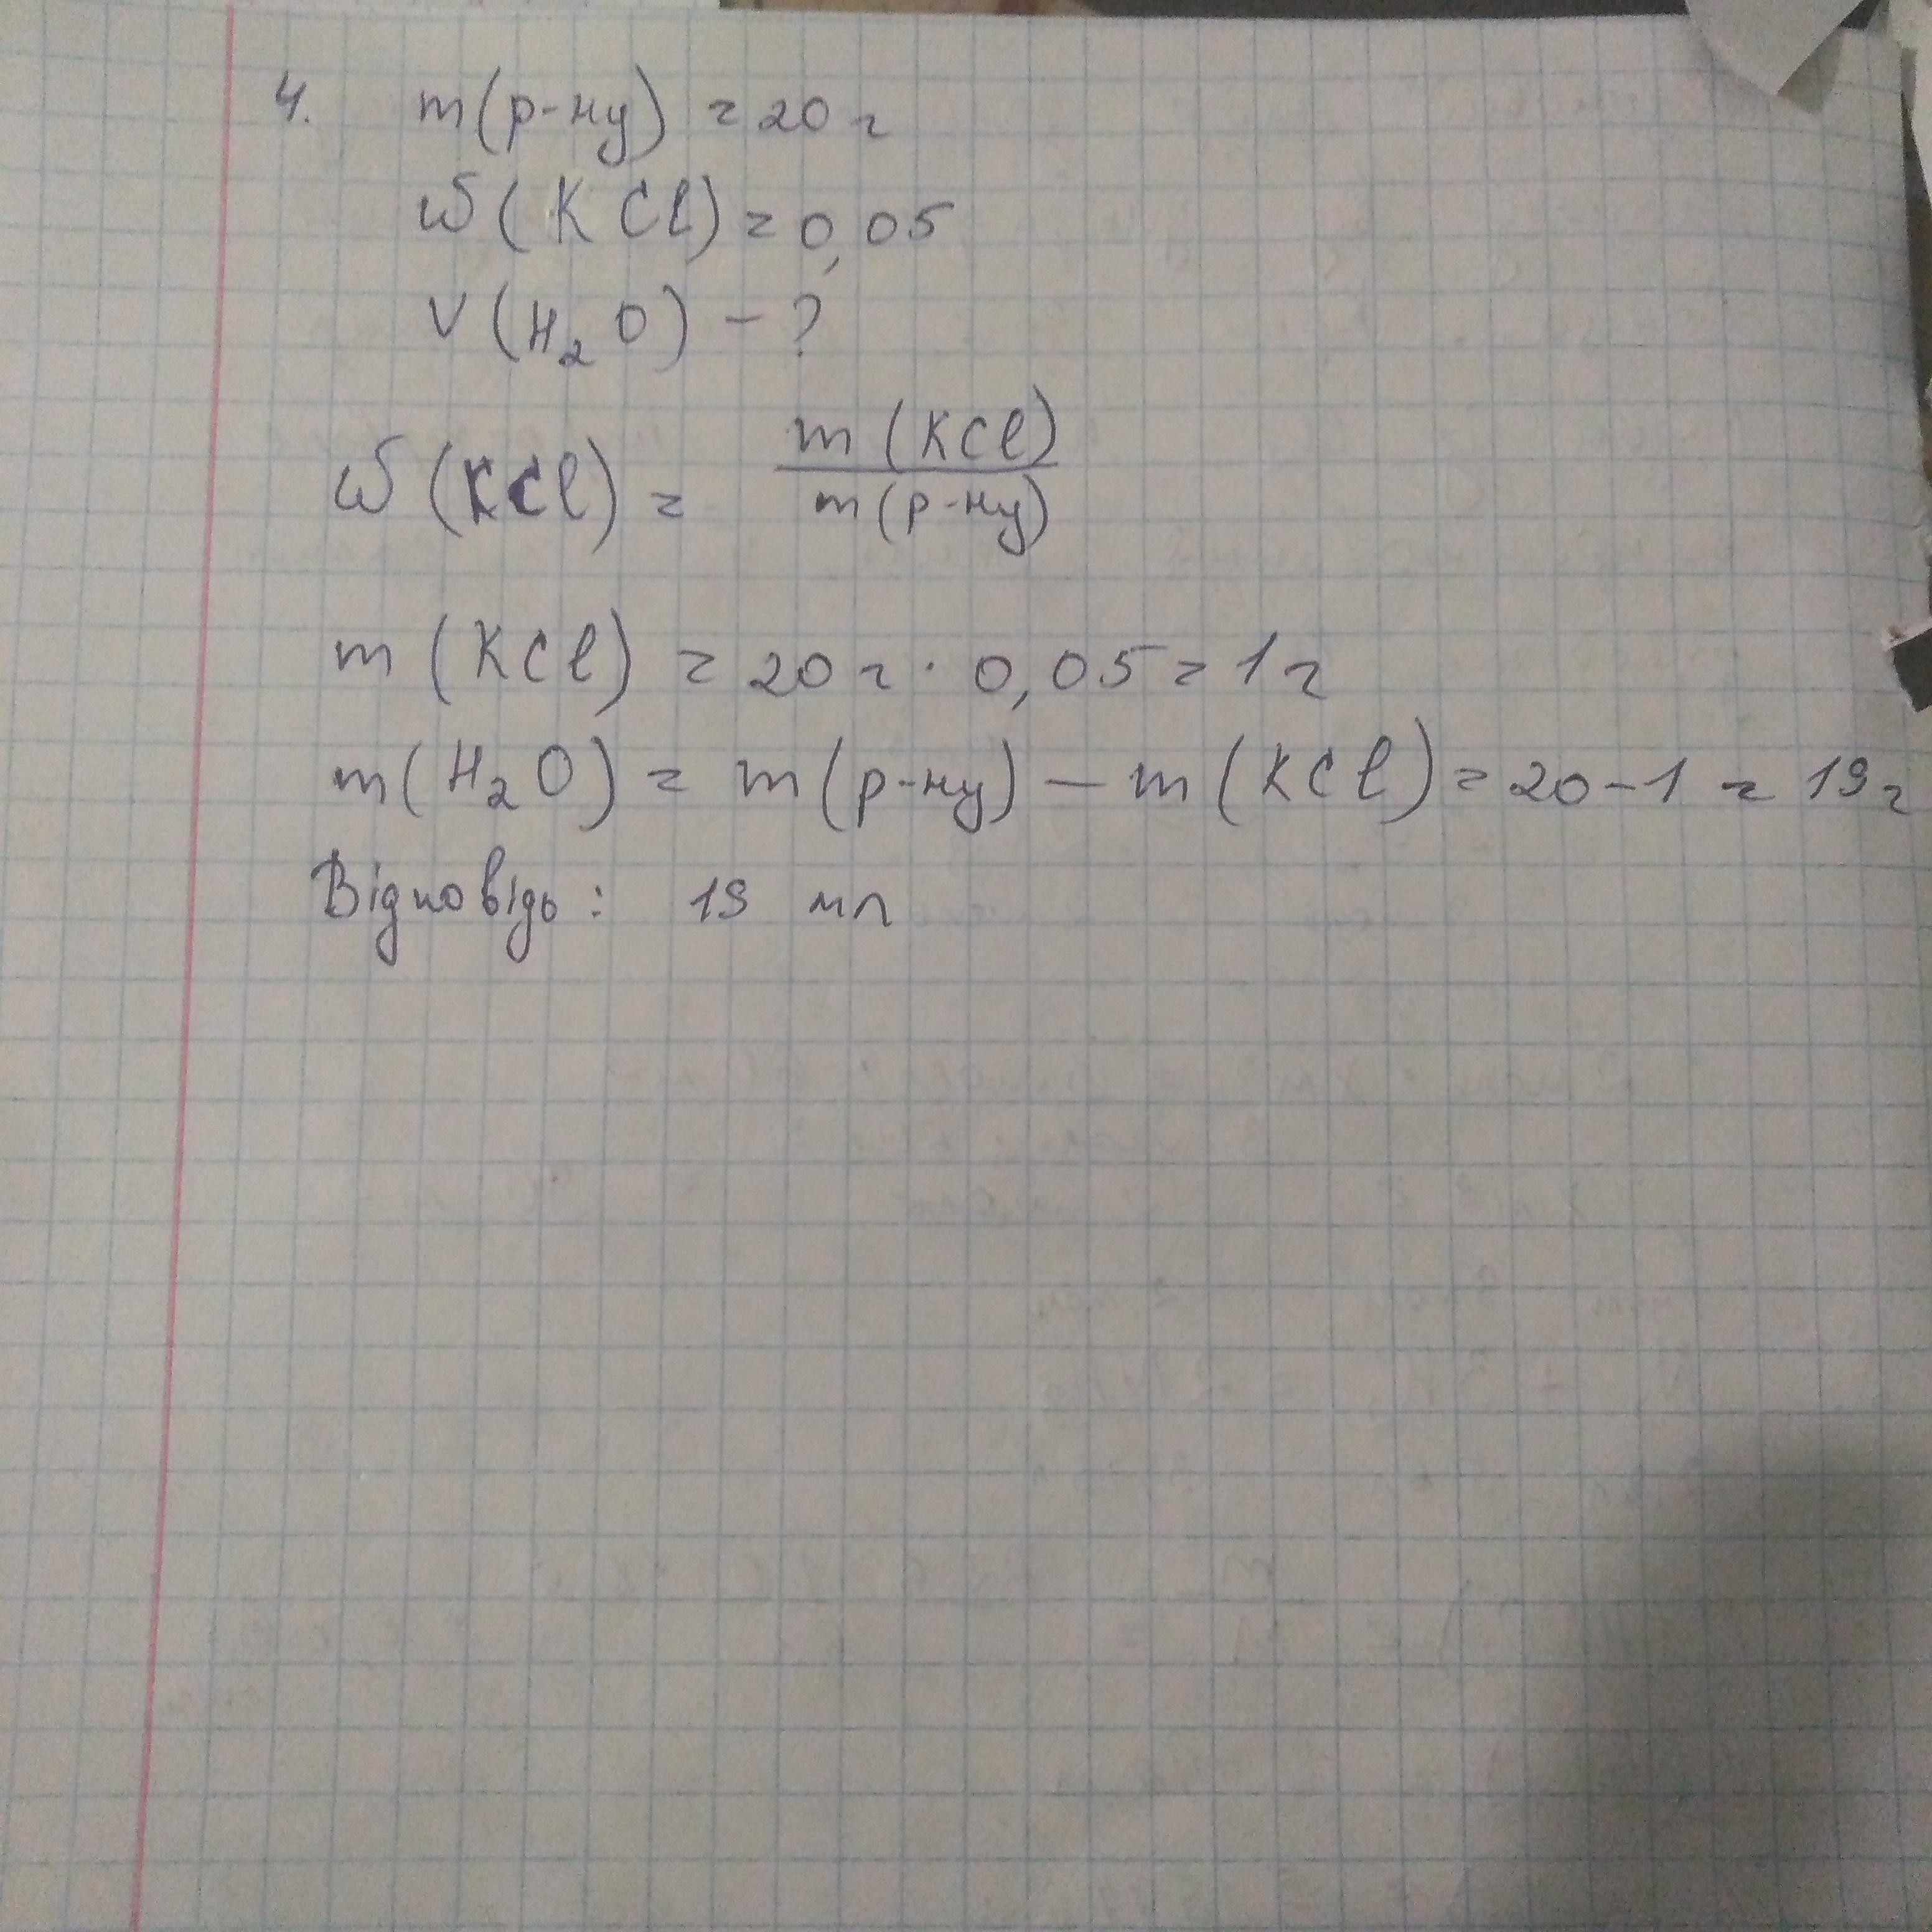 4. m(р-ну) = 20 г
ω(KCl) = 0,05
V(H₂O) - ?
ω(KCl) = m(KCl) / m(р-ну)
m(KCl) = 20 г · 0,05 = 1 г
m(H₂O) = m(р-ну) — m(KCl) = 20 - 1 = 19 г
Відповідь: 19 мл